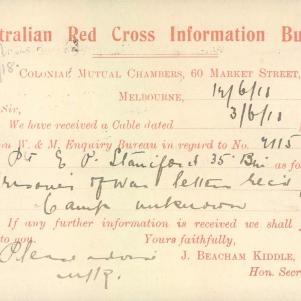 tralian Red Cross Information Bu
/18.
Colonial Mutual Chambers, 60 Market Street,
Melbourne, 14/6/18
Sir, 3/6/18
We have received a Cable dated
on W. & M. Enquiry Bureau in regard to No. 2115
Pte E. P. Staniford 35 Bn as fo
risoner of War letters rec'd
Camp unknown
If any further information is received we shall
to you. Yours faithfully,
Please J. Beacham Kiddle,
Hon. Secr